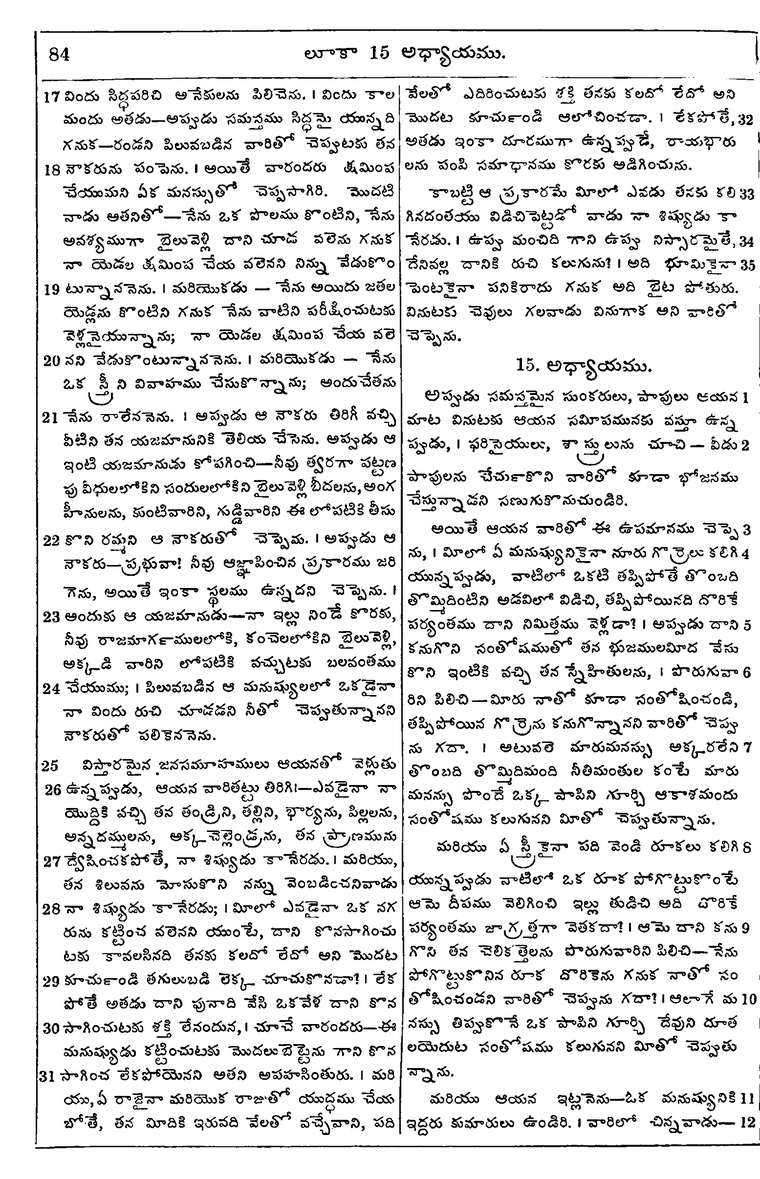 84 లూకా 15 అధ్యాయము.
17 విందు సిద్ధపరిచి అనేకులను పిలిచెను. । విందు కాల
మందు అతడు—అప్పుడు సమస్తము సిద్ధమై యున్నది
గనుక—రండని పిలువబడిన వారితో చెప్పుటకు తన
18 నౌకరును పంపెను. । అయితే వారందరు క్షమింప
చేయుమని ఏక మనస్సుతో చెప్పసాగిరి. మొదటి
వాడు అతనితో—నేను ఒక పొలము కొంటిని, నేను
అవశ్యముగా బైలువెళ్లి దాని చూడ వలెను గనుక
నా యెడల క్షమింప చేయ వలెనని నిన్ను వేడుకొం
19 టున్నాననెను. । మరియొకడు — నేను అయిదు జతల
యెడ్లను కొంటిని గనుక నేను వాటిని పరీక్షించుటకు
వెళ్లనైయున్నాను; నా యెడల క్షమింప చేయ వలె
20 నని వేడుకొంటున్నాననెను. । మరియొకడు — నేను
ఒక స్త్రీని వివాహము చేసుకొన్నాను; అందుచేతను
21 నేను రాలేననెను. । అప్పుడు ఆ నౌకరు తిరిగీ వచ్చి
వీటిని తన యజమానునికి తెలియ చేసెను. అప్పుడు ఆ
ఇంటి యజమానుడు కోపగించి—నీవు త్వరగా పట్టణ
పు వీధులలోకిని సందులలోకిని బైలువెళ్లి బీదలను, అంగ
హీనులను, కుంటివారిని, గుడ్డివారిని ఈ లోపటికి తీసు
22 కొని రమ్మని ఆ నౌకరుతో చెప్పెను. । అప్పుడు ఆ
నౌకరు—ప్రభువా! నీవు ఆజ్ఞాపించిన ప్రకారము జరి
గెను, అయితే ఇంకా స్థలము ఉన్నదని చెప్పెను. ।
23 అందుకు ఆ యజమానుడు—నా ఇల్లు నిండే కొరకు,
నీవు రాజమార్గములలోకి, కంచెలలోకిని బైలువెళ్లి,
అక్కడి వారిని లోపటికి వచ్చుటకు బలవంతము
24 చేయుము; । పిలువబడిన ఆ మనుష్యులలో ఒకడైనా
నా విందు రుచి చూడడని నీతో చెప్పుతున్నానని
నౌకరుతో పలికెననెను.
25 విస్తారమైన జనసమూహములు ఆయనతో వెళ్లుతు
26 ఉన్నప్పుడు, ఆయన వారితట్టు తిరిగి:—ఎవడైనా నా
యొద్దికి వచ్చి తన తండ్రిని, తల్లిని, భార్యను, పిల్లలను,
అన్నదమ్ములను, అక్కచెల్లెండ్రను, తన ప్రాణమును
27 ద్వేషించకపోతే, నా శిష్యుడు కానేరడు. । మరియు,
తన శిలువను మోసుకొని నన్ను వెంబడించనివాడు
28 నా శిష్యుడు కానేరడు; । మీలో ఎవడైనా ఒక నగ
రును కట్టించ వలెనని యుంటే, దాని కొనసాగించు
టకు కావలసినది తనకు కలదో లేదో అని మొదట
29 కూచుర్ండి తగులుబడి లెక్క చూచుకొనడా?। లేక
పోతే అతడు దాని పునాది వేసి ఒకవేళ దాని కొన
30 సాగించుటకు శక్తి లేనందున, । చూచే వారందరు—ఈ
మనుష్యుడు కట్టించుటకు మొదలుబెట్టెను గాని కొన
31 సాగించ లేకపోయెనని అతని అపహసింతురు. । మరి
యు, ఏ రాజైనా మరియొక రాజుతో యుద్ధము చేయ
బోతే, తన మీదికి ఇరువది వేలతో వచ్చేవాని, పది
వేలతో ఎదిరించుటకు శక్తి తనకు కలదో లేదో అని
మొదట కూచుర్ండి ఆలోచించడా. । లేకపోతే, 32
అతడు ఇంకా దూరముగా ఉన్నప్పుడే, రాయభారు
లను పంపి సమాధానము కొరకు అడిగించును.
కాబట్టి ఆ ప్రకారమే మీలో ఎవడు తనకు కలి 33
గినదంతయు విడిచిపెట్టడో వాడు నా శిష్యుడు కా
నేరడు. । ఉప్పు మంచిది గాని ఉప్పు నిస్సారమైతే, 34
దేనివల్ల దానికి రుచి కలుగును?। అది భూమికైనా 35
పెంటకైనా పనికిరాదు గనుక అది బైట పోతురు.
వినుటకు చెవులు గలవాడు వినుగాక అని వారితో
చెప్పెను.
15. అధ్యాయము.
అప్పుడు సమస్తమైన సుంకరులు, పాపులు ఆయన 1
మాట వినుటకు ఆయన సమీపమునకు వస్తూ ఉన్న
ప్పుడు, । ఫరిసైయులు, శాస్త్రులును చూచి — వీడు 2
పాపులను చేచుర్కొని వారితో కూడా భోజనము
చేస్తున్నాడని సణుగుకొనుచుండిరి.
అయితే ఆయన వారితో ఈ ఉపమానము చెప్పె 3
ను, । మీలో ఏ మనుష్యునికైనా నూరు గొర్రెలు కలిగి 4
యున్నప్పుడు, వాటిలో ఒకటి తప్పిపోతే తొంబది
తొమ్మిదింటిని అడవిలో విడిచి, తప్పిపోయినది దొరికే
పర్యంతము దాని నిమిత్తము వెళ్లడా?। అప్పుడు దాని 5
కనుగొని సంతోషముతో తన భుజములమీద వేసు
కొని ఇంటికి వచ్చి తన స్నేహితులను, । పొరుగువా 6
రిని పిలిచి—మీరు నాతో కూడా సంతోషించండి,
తప్పిపోయిన గొర్రెను కనుగొన్నానని వారితో చెప్పు
ను గదా. । అటువలె మారుమనస్సు అక్కరలేని 7
తొంబది తొమ్మిదిమంది నీతిమంతుల కంటే మారు
మనస్సు పొందే ఒక్క పాపిని గూర్చి ఆకాశమందు
సంతోషము కలుగునని మీతో చెప్పుతున్నాను.
మరియు ఏ స్త్రీకైనా పది వెండి రూకలు కలిగి 8
యున్నప్పుడు వాటిలో ఒక రూక పోగొట్టుకొంటే
ఆమె దీపము వెలిగించి ఇల్లు తుడిచి అది దొరికే
పర్యంతము జాగ్రత్తగా వెతకదా?। ఆమె దాని కను 9
గొని తన చెలికత్తెలను పొరుగువారిని పిలిచి—నేను
పోగొట్టుకొనిన రూక దొరికెను గనుక నాతో సం
తోషించండని వారితో చెప్పును గదా?। ఆలాగే మ 10
నస్సు తిప్పుకొనే ఒక పాపిని గూర్చి దేవుని దూత
లయెదుట సంతోషము కలుగునని మీతో చెప్పుతు
న్నాను.
మరియు ఆయన ఇట్లనెను—ఒక మనుష్యునికి 11
ఇద్దరు కుమారులు ఉండిరి. । వారిలో చిన్నవాడు— 12